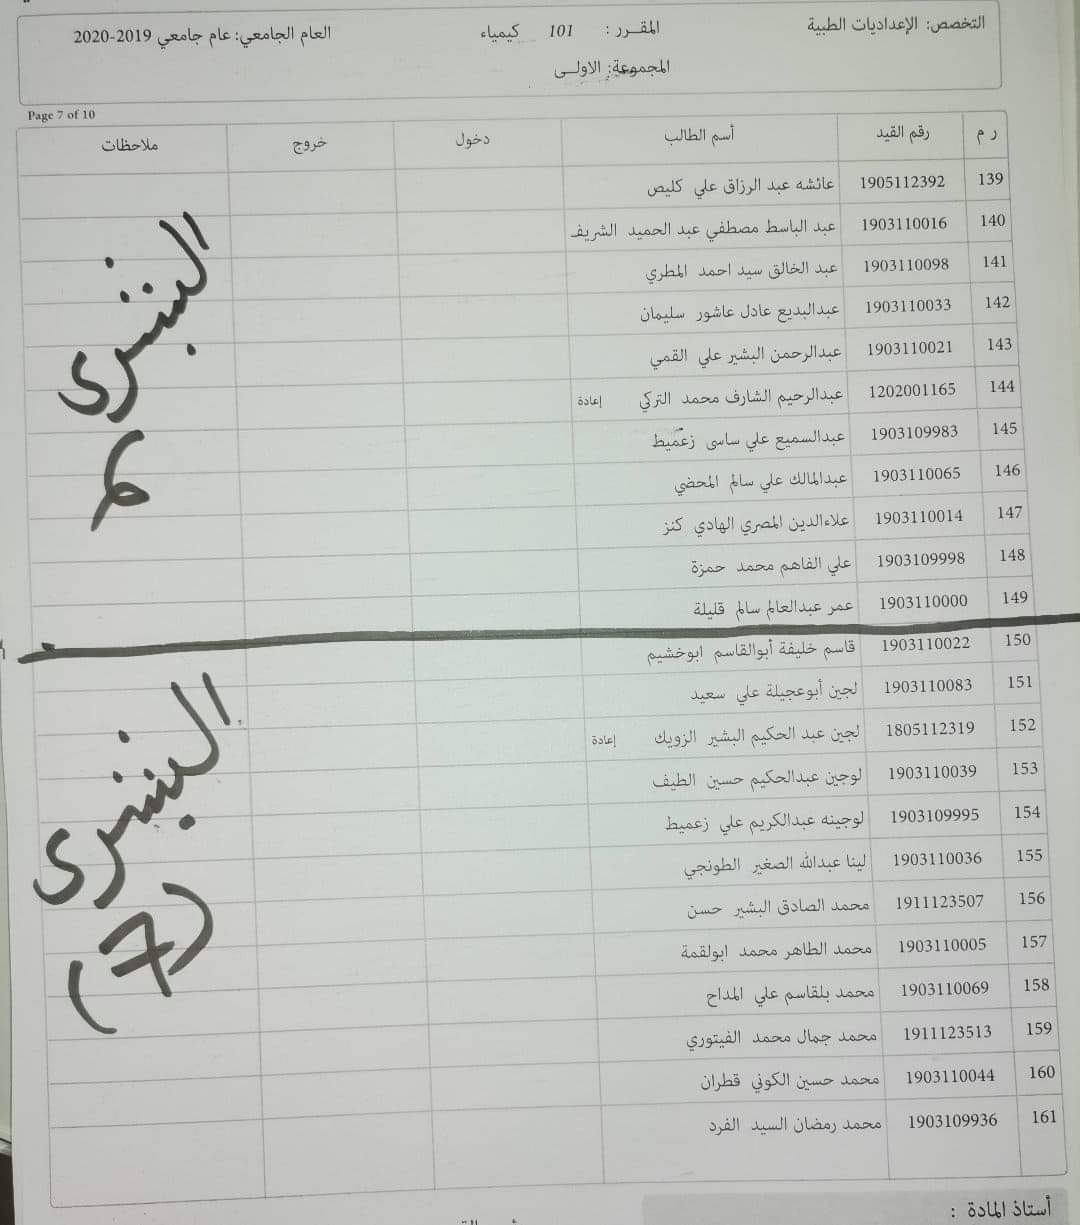 التخصص: الإعداديات الطبية المقـرر : 101 كيمياء العام الجامعي: عام جامعي 2019-2020
المجموعة: الاولـى
Page 7 of 10
ر م رقم القيد أسم الطالب دخول خروج ملاحظات
139 1905112392 عائشه عبد الرزاق علي كليص
140 1903110016 عبد الباسط مصطفي عبد الحميد الشريف
141 1903110098 عبد الخالق سيد احمد المطري
142 1903110033 عبدالبديع عادل عاشور سليمان
143 1903110021 عبدالرحمن البشير علي القمي
144 1202001165 عبدالرحيم الشارف محمد التركي إعادة
145 1903109983 عبدالسميع علي ساسى زعميط
146 1903110065 عبدالمالك علي سالم المحضي
147 1903110014 علاءالدين المصري الهادي كنز
148 1903109998 علي الفاهم محمد حمزة
149 1903110000 عمر عبدالعالم سالم قليلة
150 1903110022 قاسم خليفة أبوالقاسم ابوخشيم
151 1903110083 لجين أبوعجيلة علي سعيد
152 1805112319 لجين عبد الحكيم البشير الزويك إعادة
153 1903110039 لوجين عبدالحكيم حسين الطيف
154 1903109995 لوجينه عبدالكريم علي زعميط
155 1903110036 لينا عبدالله الصغير الطونجي
156 1911123507 محمد الصادق البشير حسن
157 1903110005 محمد الطاهر محمد ابولقمة
158 1903110069 محمد بلقاسم علي المداح
159 1911123513 محمد جمال محمد الفيتوري
160 1903110044 محمد حسين الكوني قطران
161 1903109936 محمد رمضان السيد الفرد
البشرى
البشرى
(7)
أستاذ المادة :